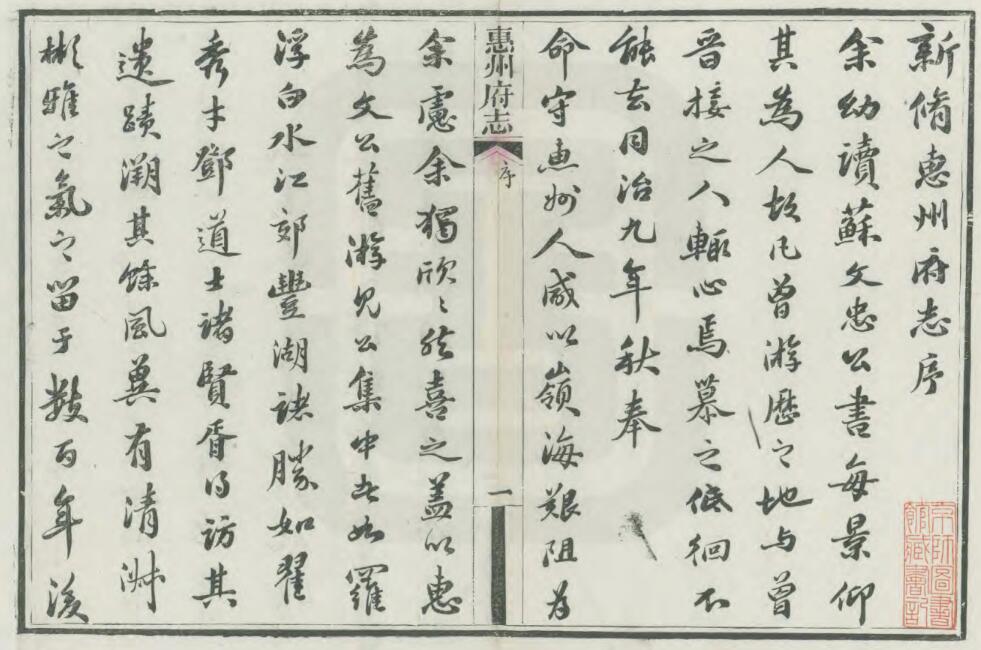 新脩惠州府志序
余幼讀蘇文忠公書每景仰
其為人故凡曾游歷之地与曾
晋接之人輒心焉慕之低徊不
能去同治九年秋奉
命守惠州人咸以嶺海艱阻为
惠州府志
序
一
余慮余獨欣〻然喜之蓋以惠
為文公舊游見公集中者如羅
浮白水江郊豐湖諸勝如翟
秀才鄧道士諸賢胥得訪其
遺蹟溯其餘风冀有清淑
彬雅之氣之留于數百年後
京師圖書
館藏書記